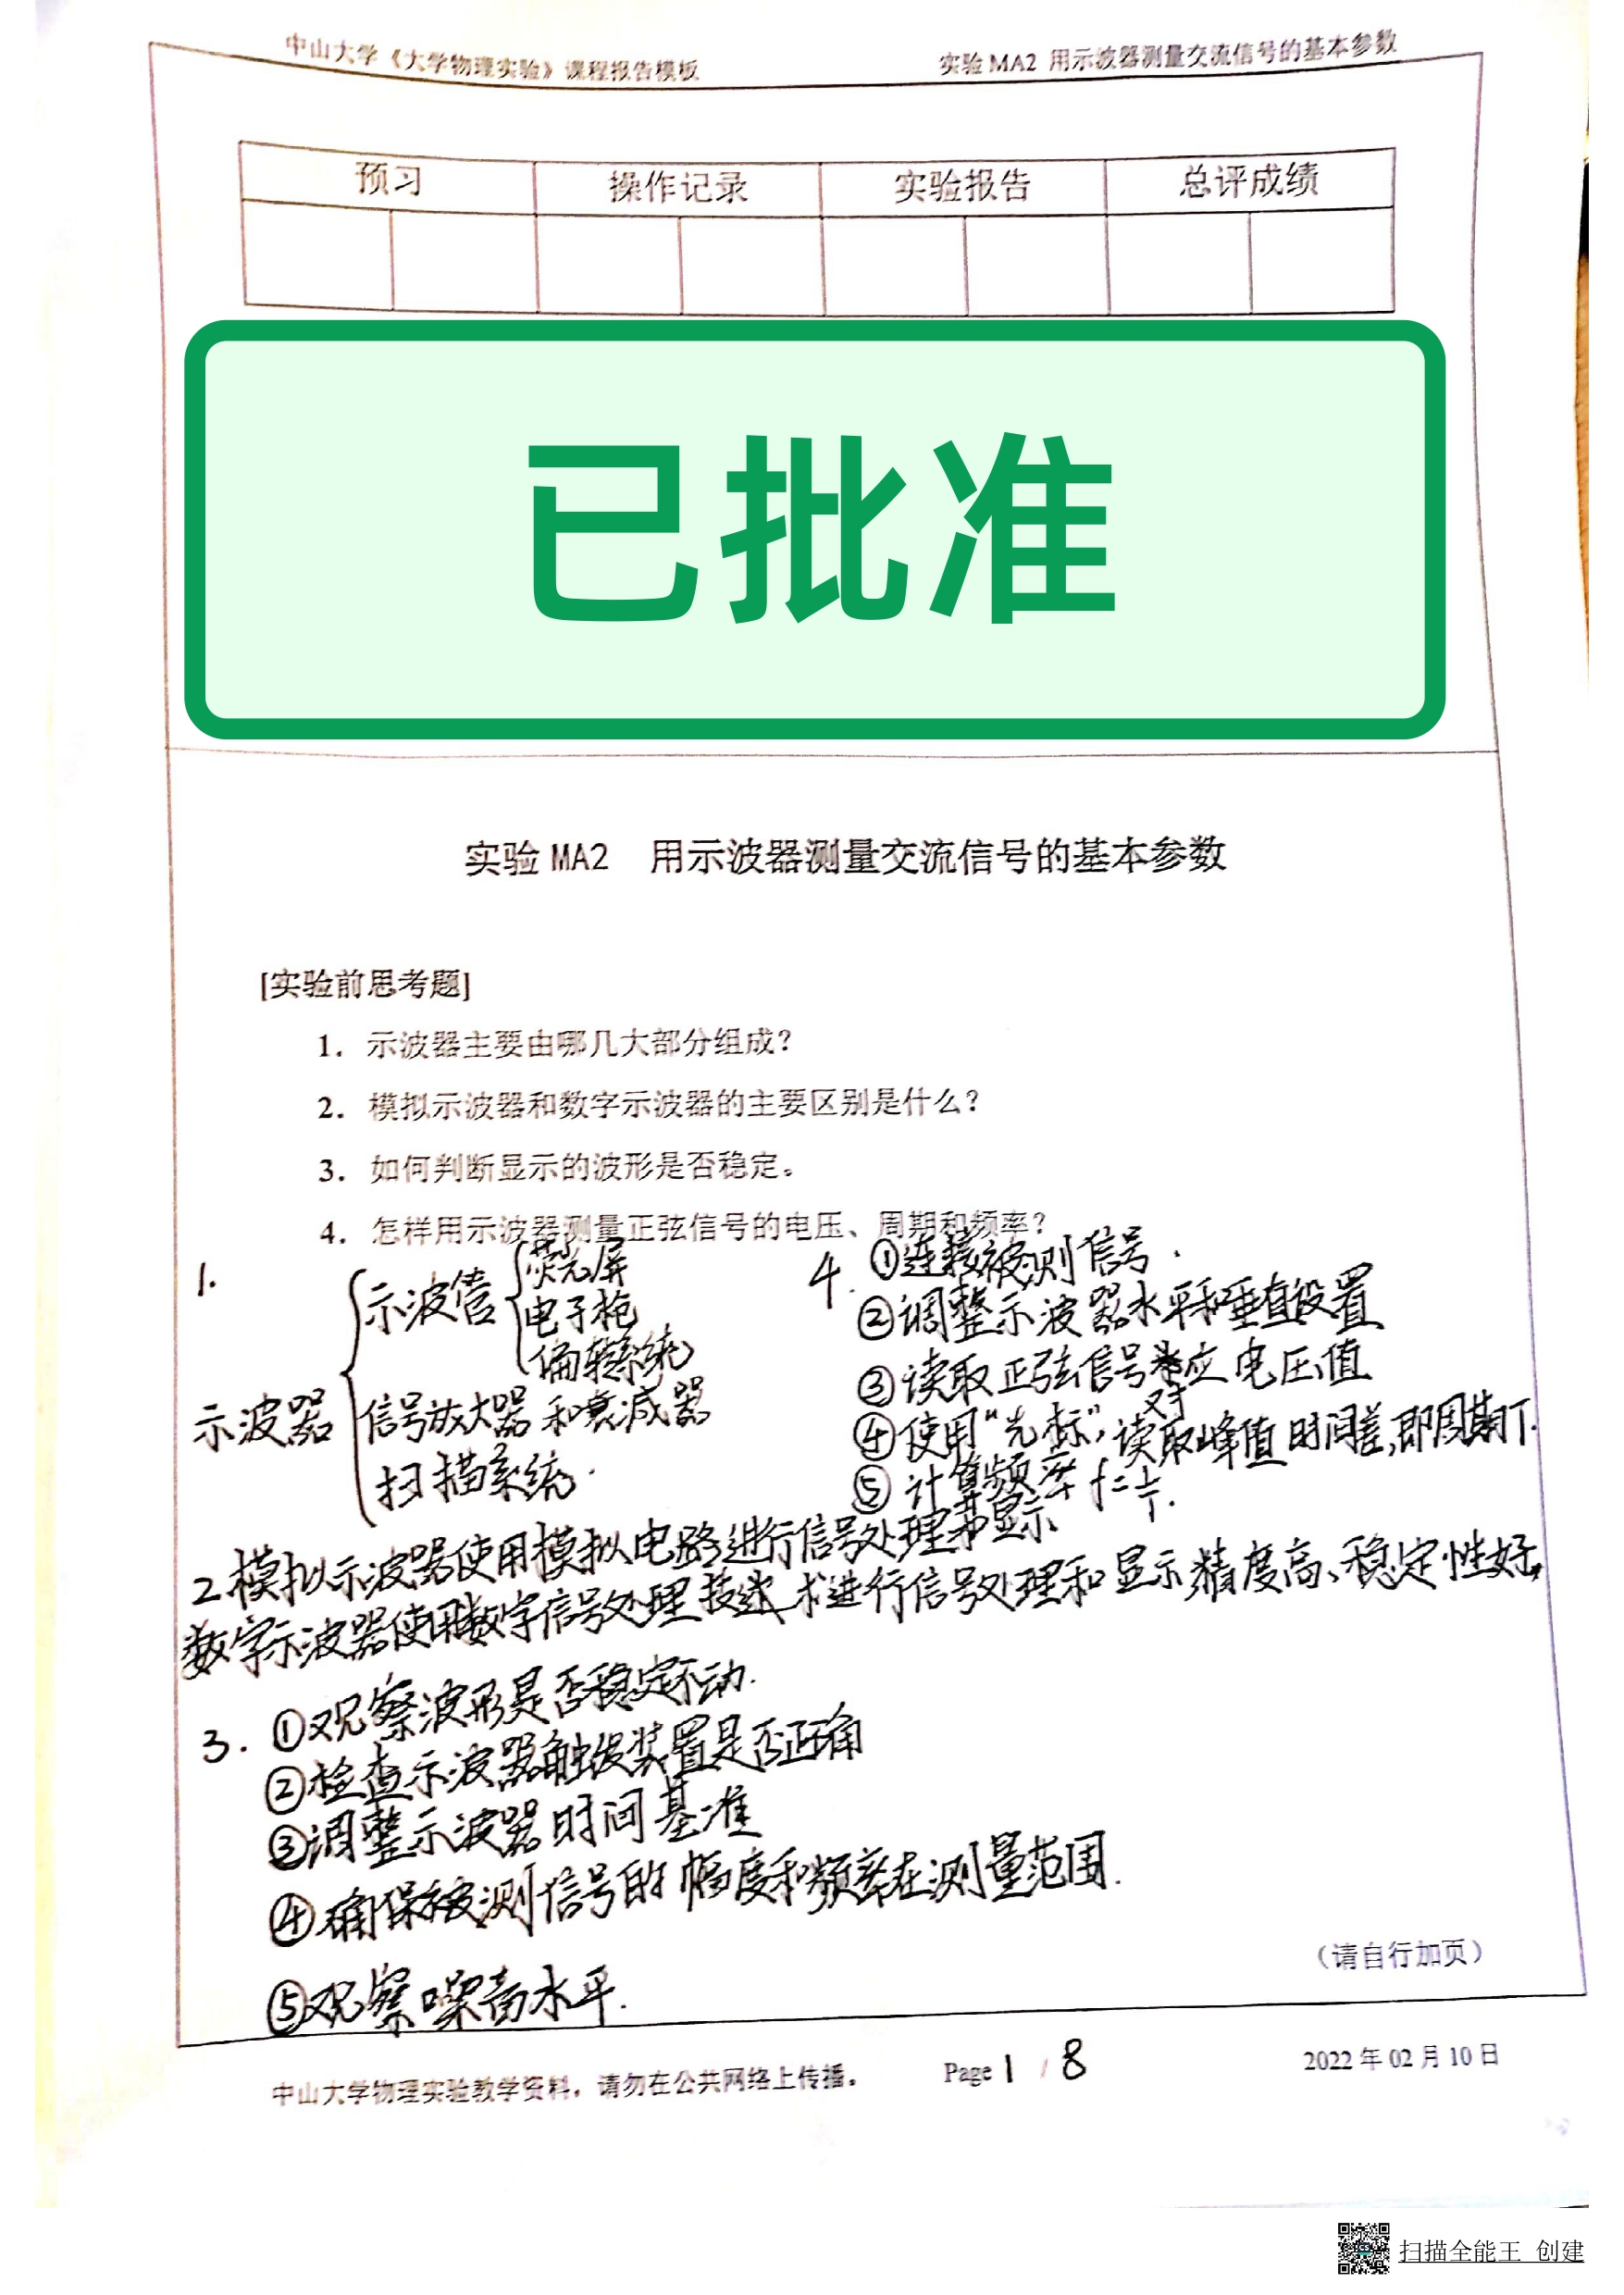 中山大学《大学物理实验》课程报告模板
实验 MA2 用示波器测量交流信号的基本参数
预习 操作记录 实验报告 总评成绩
已批准
实验 MA2 用示波器测量交流信号的基本参数
[实验前思考题]
1. 示波器主要由哪几大部分组成?
2. 模拟示波器和数字示波器的主要区别是什么?
3. 如何判断显示的波形是否稳定。
4. 怎样用示波器测量正弦信号的电压、周期和频率?
1.
示波器
示波管
荧光屏
电子枪
偏转系统
信号放大器和衰减器
扫描系统.
4. ①连接被测信号.
②调整示波器水平和垂直设置
③读取正弦信号对应电压值
④使用“光标”,读取峰值时间差,即周期T.
⑤计算频率 f=1/T.
2.模拟示波器使用模拟电路进行信号处理和显示
数字示波器使用数字信号处理技术进行信号处理和显示精度高、稳定性好,
3. ①观察波形是否稳定不动.
②检查示波器触发装置是否正确
③调整示波器时间基准
④确保被测信号的幅度和频率在测量范围.
⑤观察噪音水平.
(请自行加页)
中山大学物理实验教学资料,请勿在公共网络上传播。
Page 1 / 8
2022 年 02 月 10 日
扫描全能王 创建